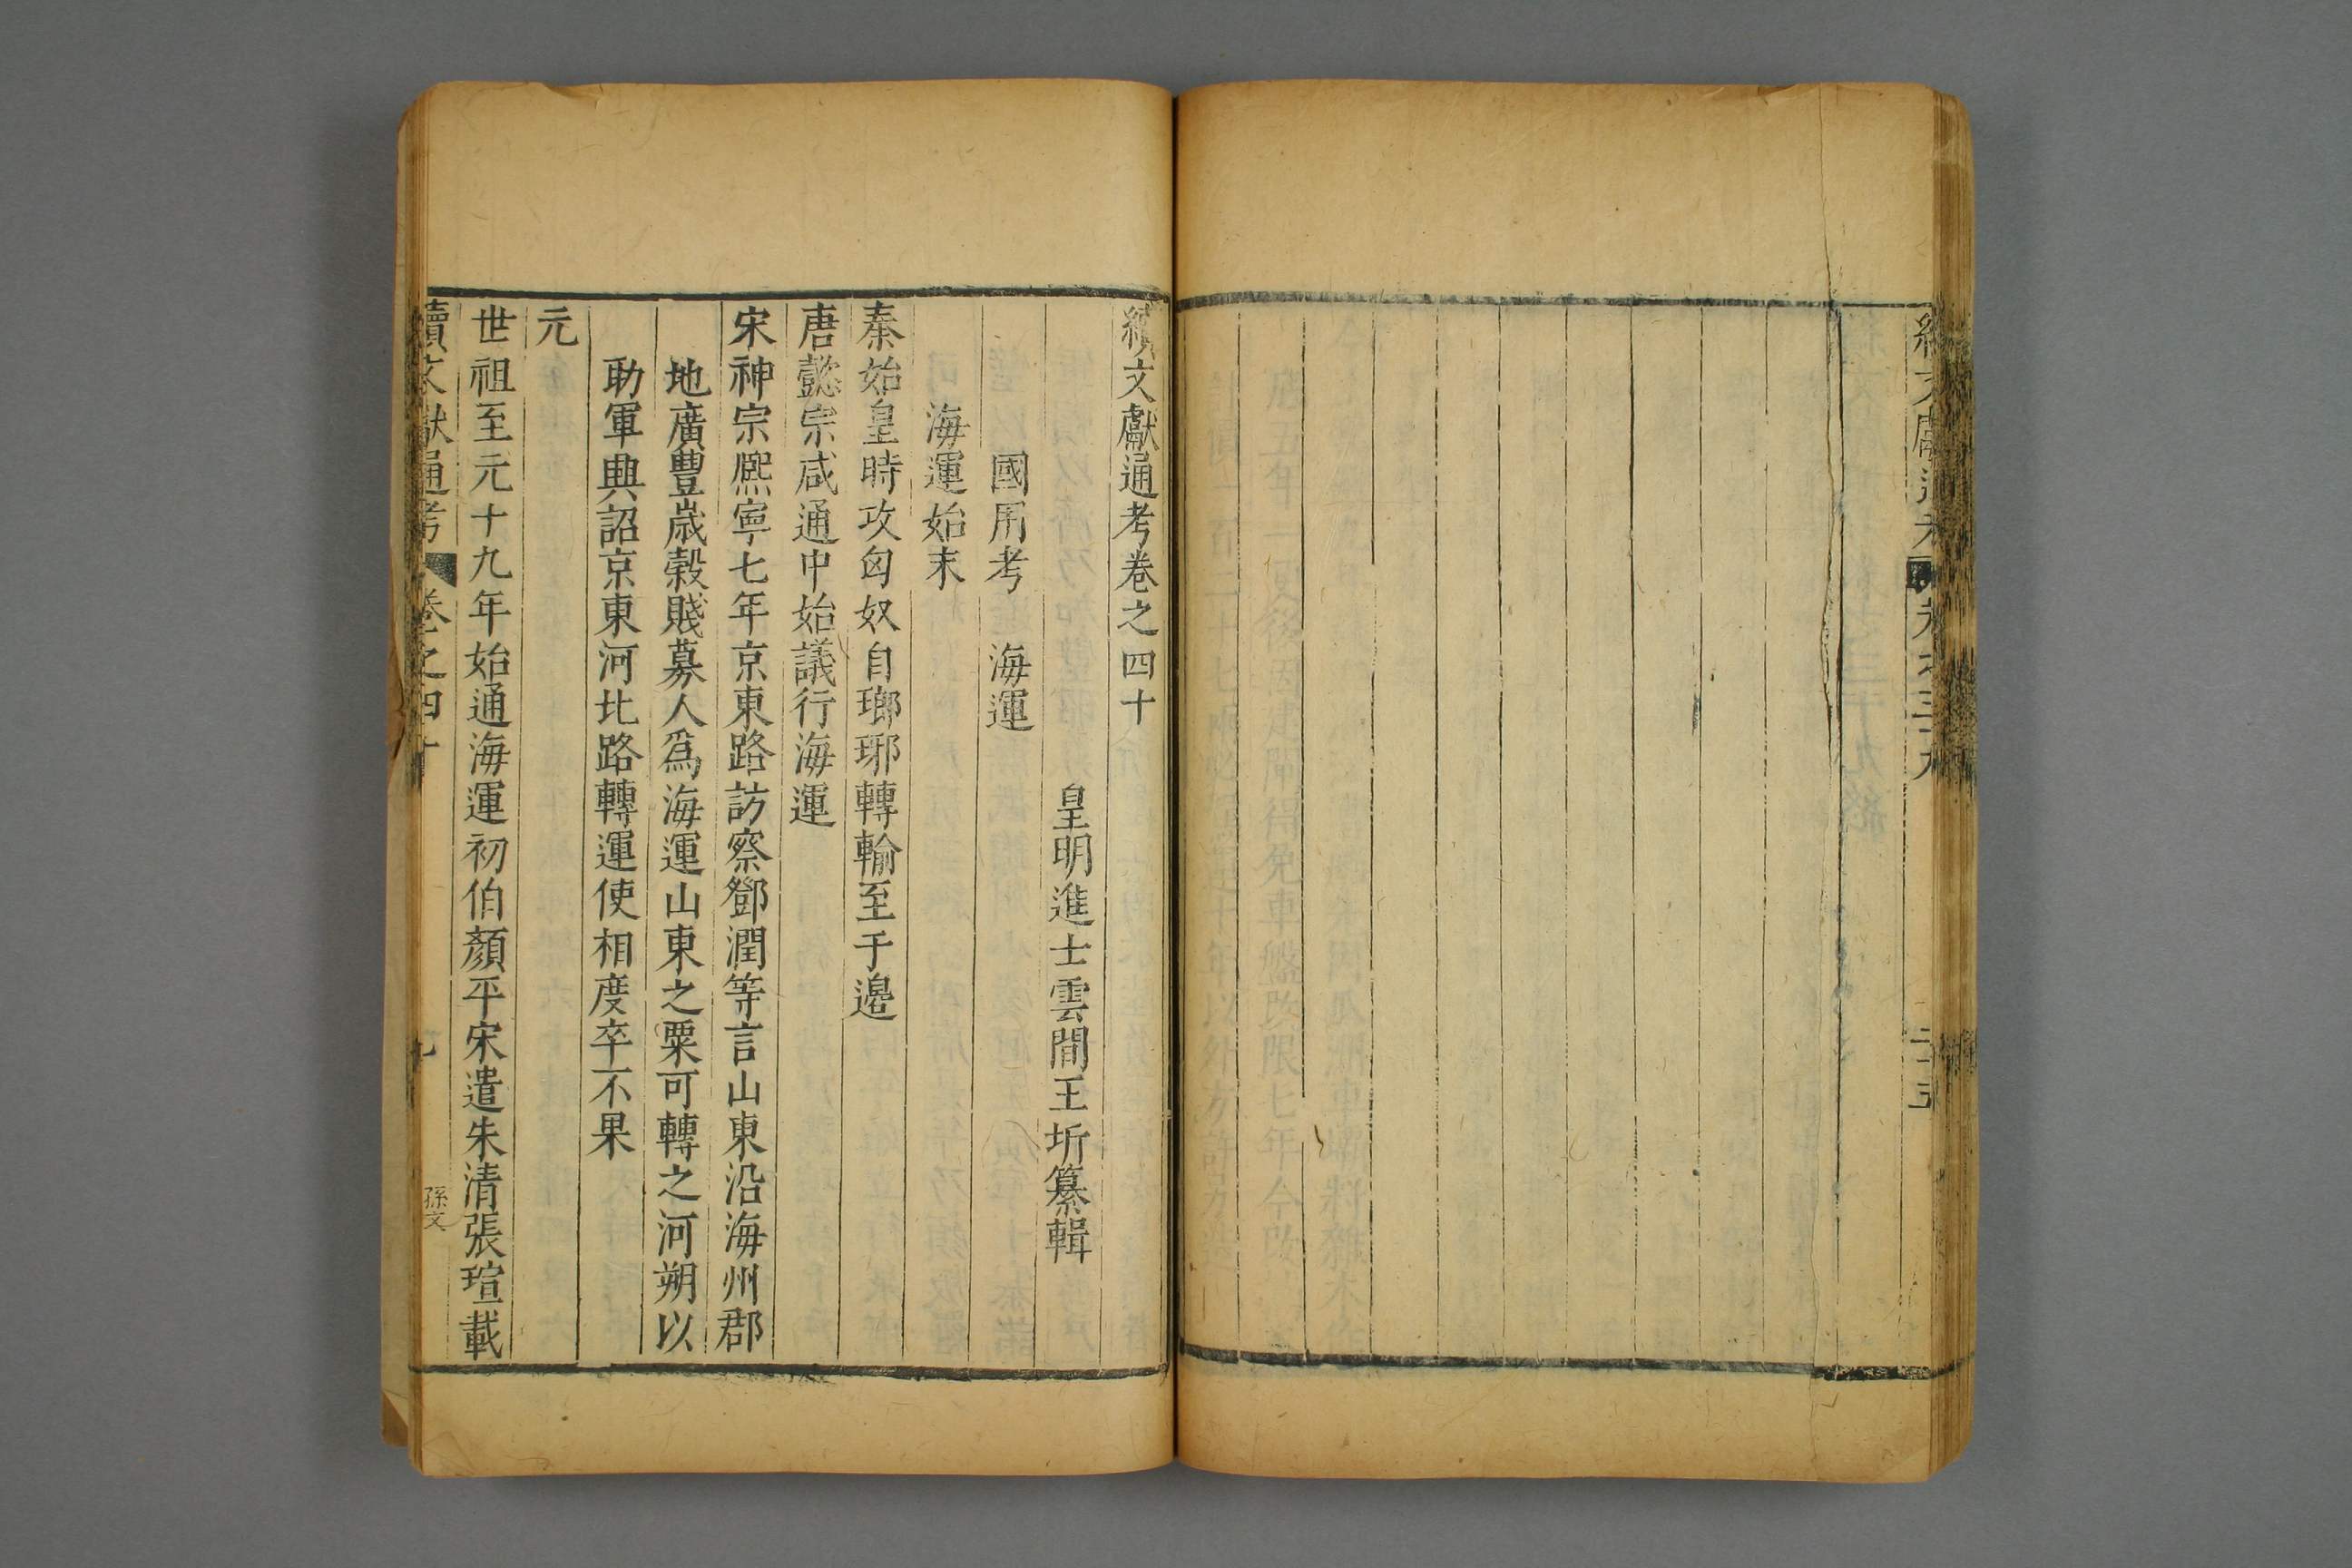 續文獻通考 卷之三十九 二十五
續文獻通考卷之四十
皇明進士雲間王圻纂輯
國用考 海運
海運始末
秦始皇時攻匈奴自瑯琊轉輸至于邊
唐懿宗咸通中始議行海運
宋神宗熈寧七年京東路訪察鄧潤等言山東沿海州郡
地廣豐歲穀賤募人爲海運山東之粟可轉之河朔以
助軍興詔京東河北路轉運使相度卒不果
元
世祖至元十九年始通海運初伯顏平宋遣朱清張瑄載
續文獻通考 卷之四十
孫文